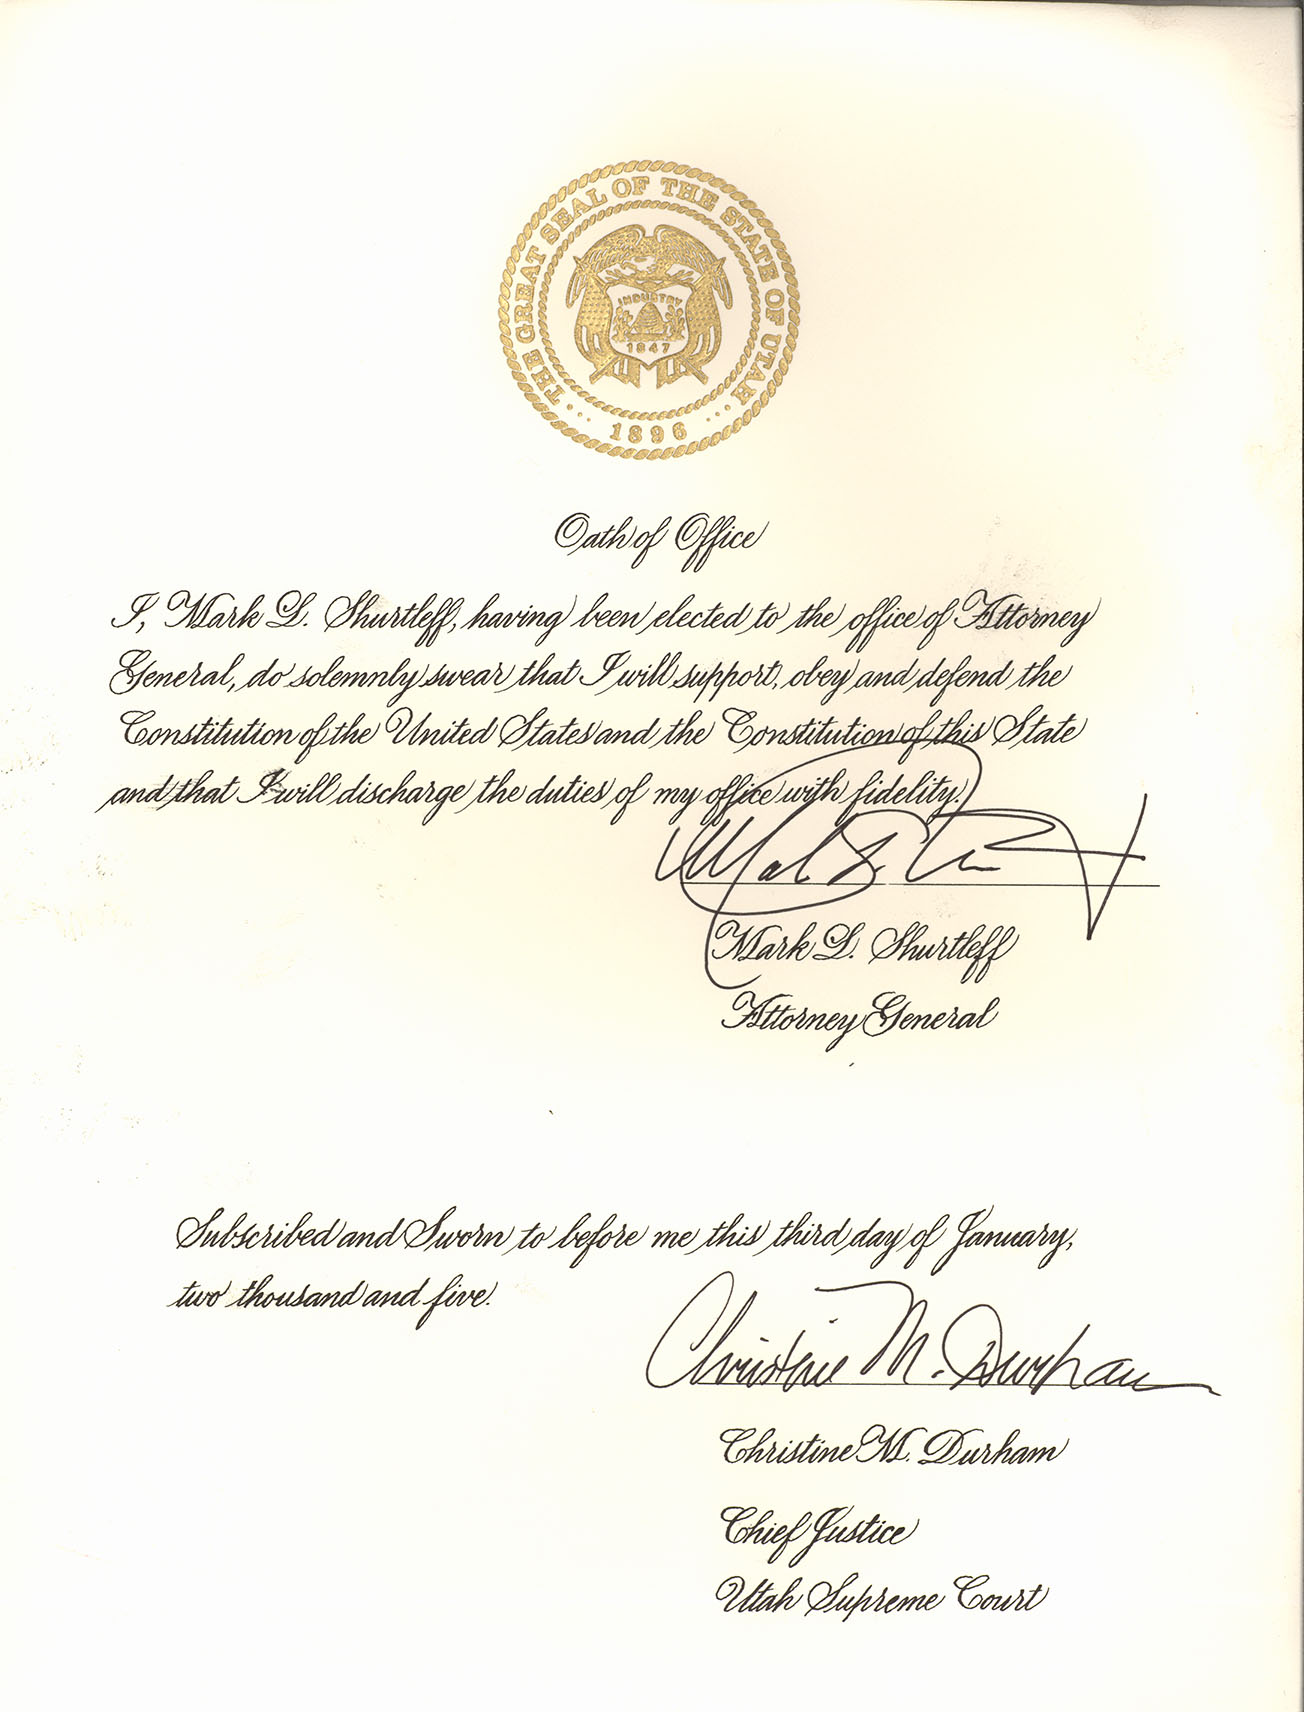 THE GREAT SEAL OF THE STATE OF UTAH
INDUSTRY
1847
1896
Oath of Office
I, Mark L. Shurtleff, having been elected to the office of Attorney
General, do solemnly swear that I will support, obey and defend the
Constitution of the United States and the Constitution of this State
and that I will discharge the duties of my office with fidelity.
Mark L. Shurtleff
Attorney General
Subscribed and Sworn to before me this third day of January,
two thousand and five.
Christine M. Durham
Christine M. Durham
Chief Justice
Utah Supreme Court